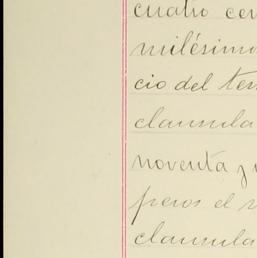 cuatro cen
milésimo
cio del ter
clausula
noventa y
pesos el v
clausula